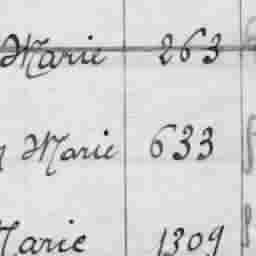 Marie 263
Marie 633
Marie 1309